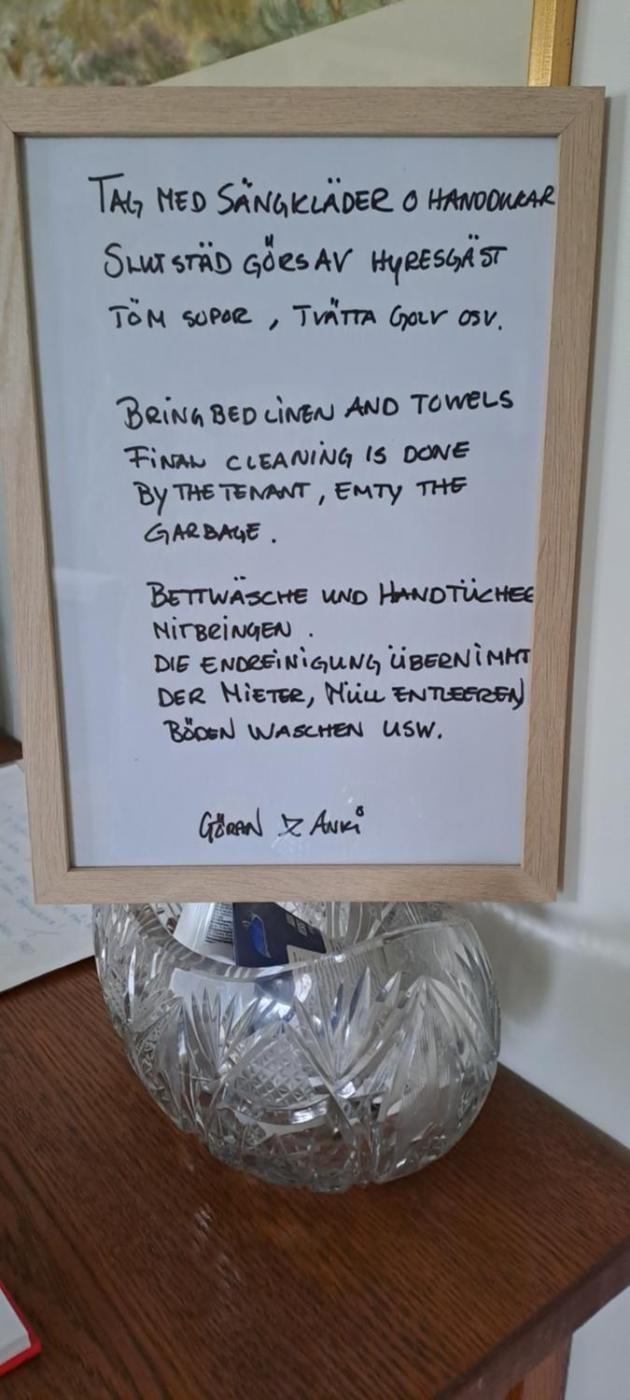 TAG MED SÄNGKLÄDER O HANDDUKAR
SLUTSTÄD GÖRS AV HYRESGÄST
TÖM SOPOR, TVÄTTA GOLV OSV.
BRING BED LINEN AND TOWELS
FINAL CLEANING IS DONE
BY THE TENANT, EMTY THE
GARBAGE.
BETTWÄSCHE UND HANDTÜCHER
MITBRINGEN.
DIE ENDREINIGUNG ÜBERNIMMT
DER MIETER, MÜLL ENTLEEREN
BÖDEN WASCHEN USW.
GÖRAN & ANKI